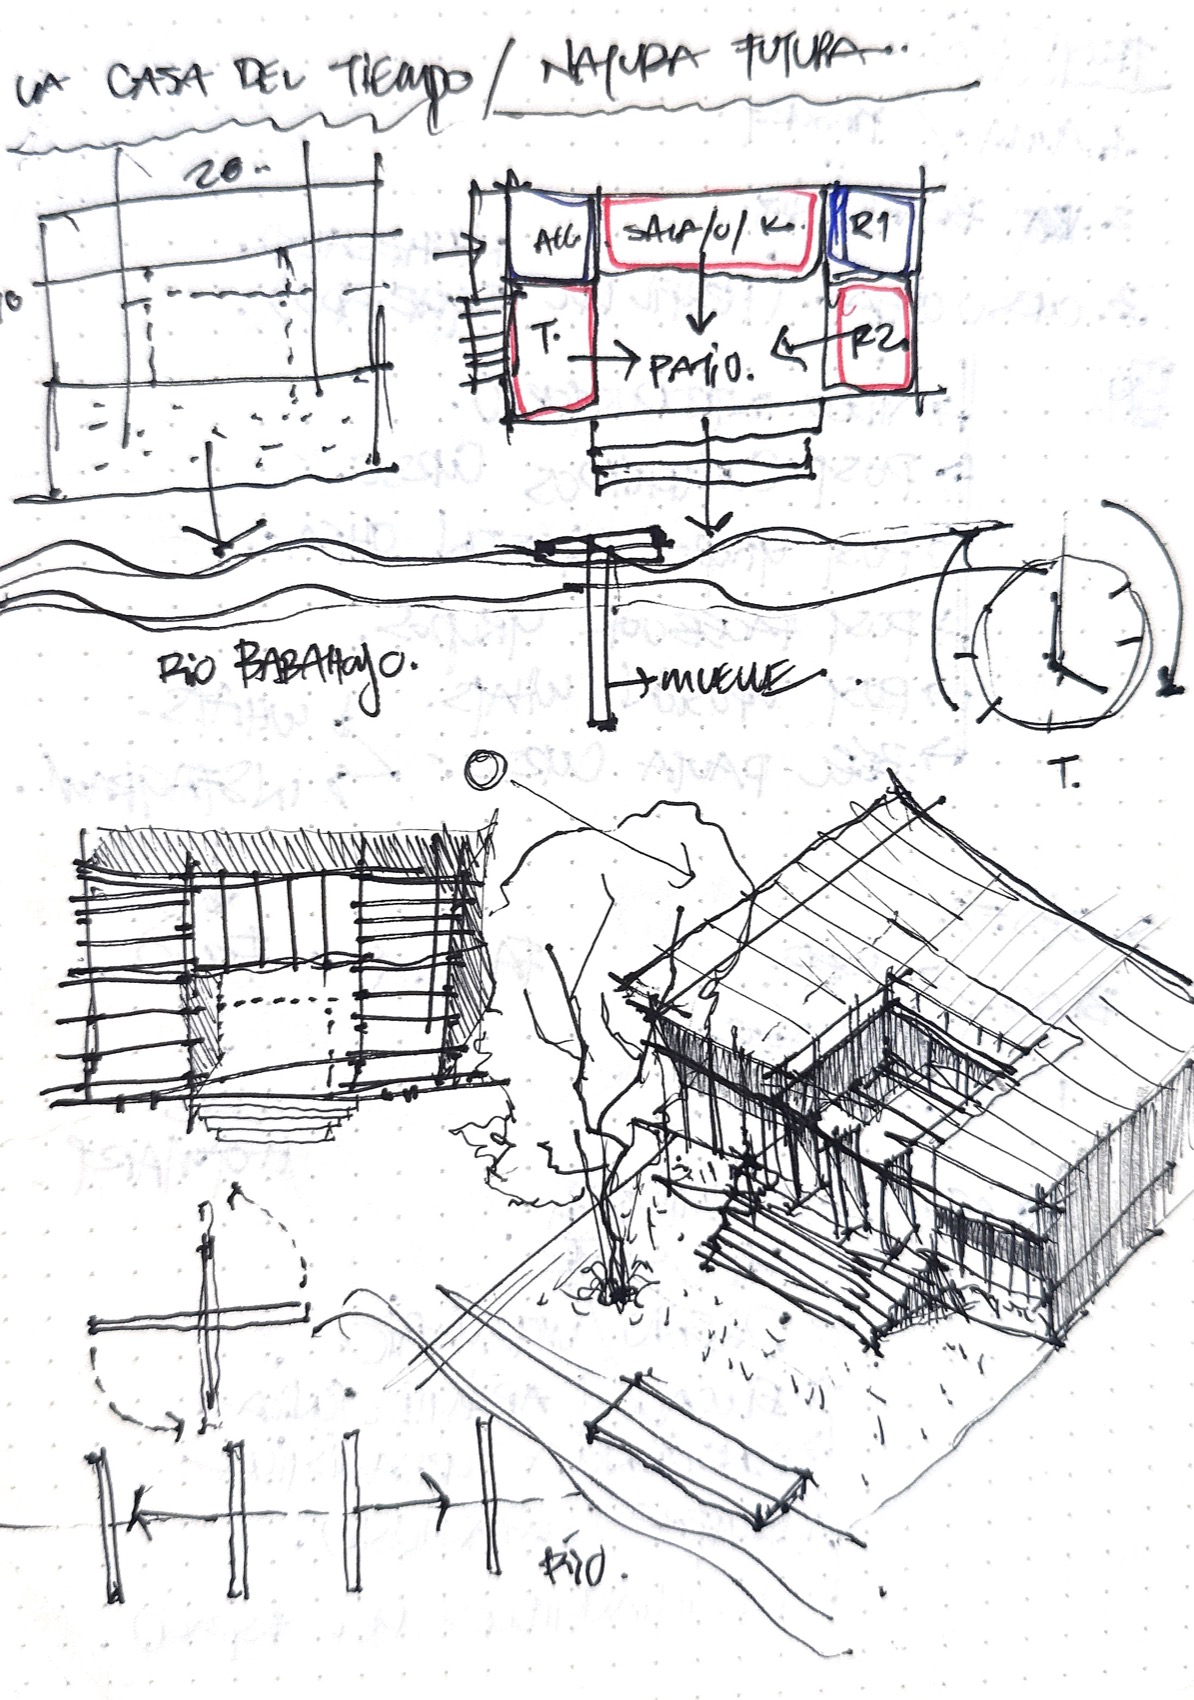 LA CASA DEL TIEMPO / NAYUDA FUTURA..
20..
ACC
SALA/C/K.
R1
T.
PATIO.
R2.
RIO BABAHOYO.
MUELLE
T.
RIO.